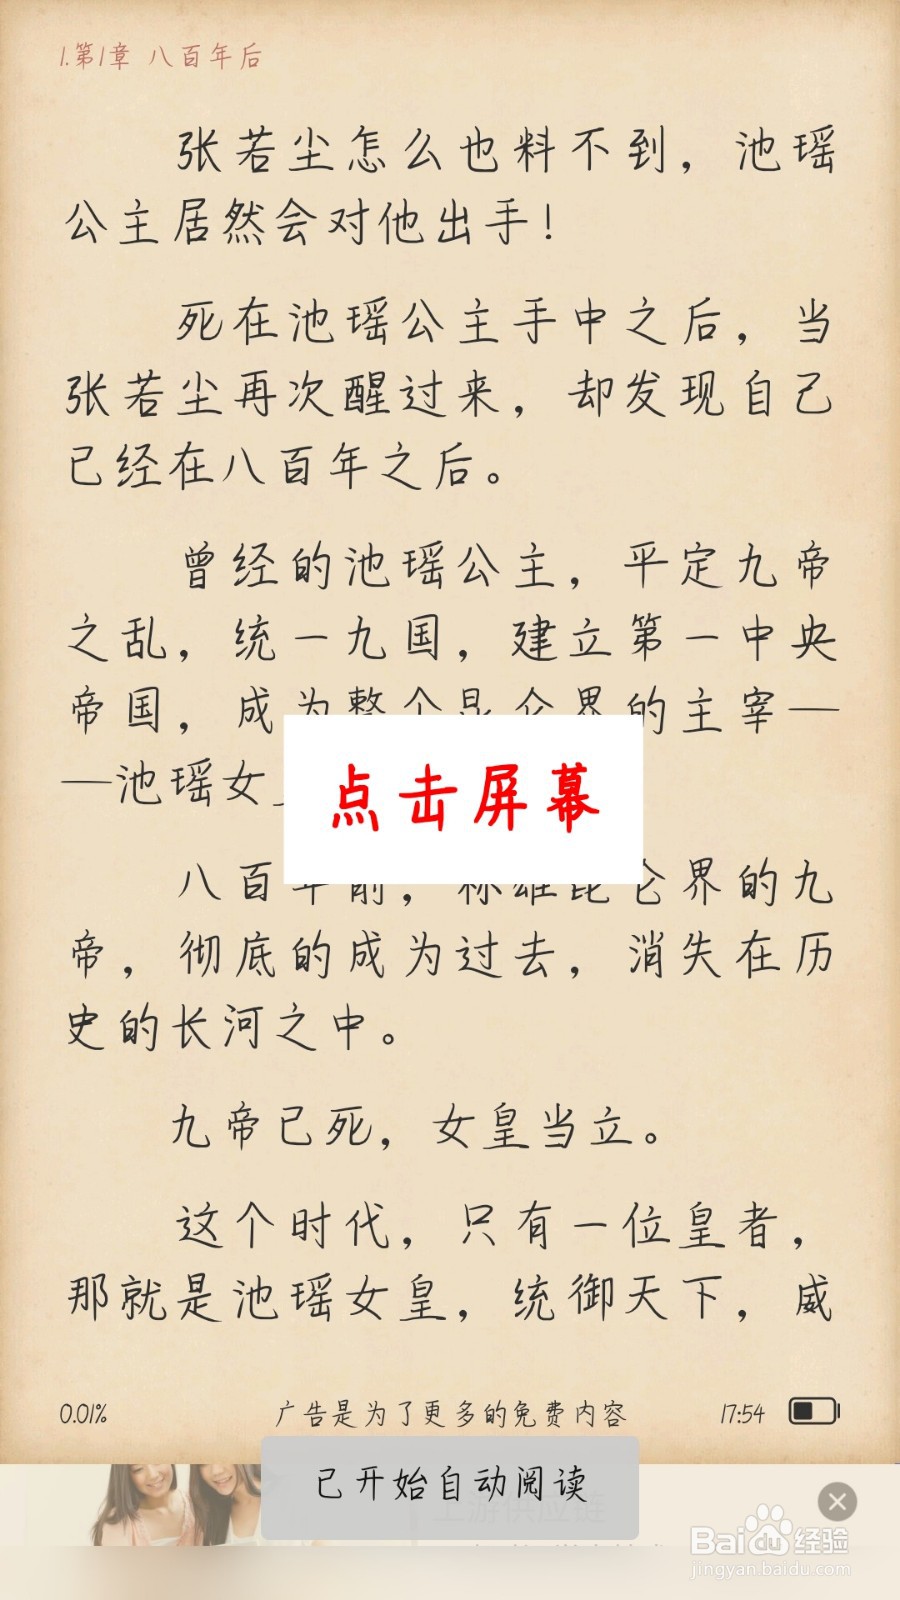 1.第1章 八百年后
张若尘怎么也料不到，池瑶
公主居然会对他出手！
死在池瑶公主手中之后，当
张若尘再次醒过来，却发现自己
已经在八百年之后。
曾经的池瑶公主，平定九帝
之乱，统一九国，建立第一中央
帝国，成为整个昆仑界的主宰—
—池瑶女
点击屏幕
八百年前，称雄昆仑界的九
帝，彻底的成为过去，消失在历
史的长河之中。
九帝已死，女皇当立。
这个时代，只有一位皇者，
那就是池瑶女皇，统御天下，威
0.01% 广告是为了更多的免费内容 17:54
已开始自动阅读
Baidu经验
jingyan.baidu.com